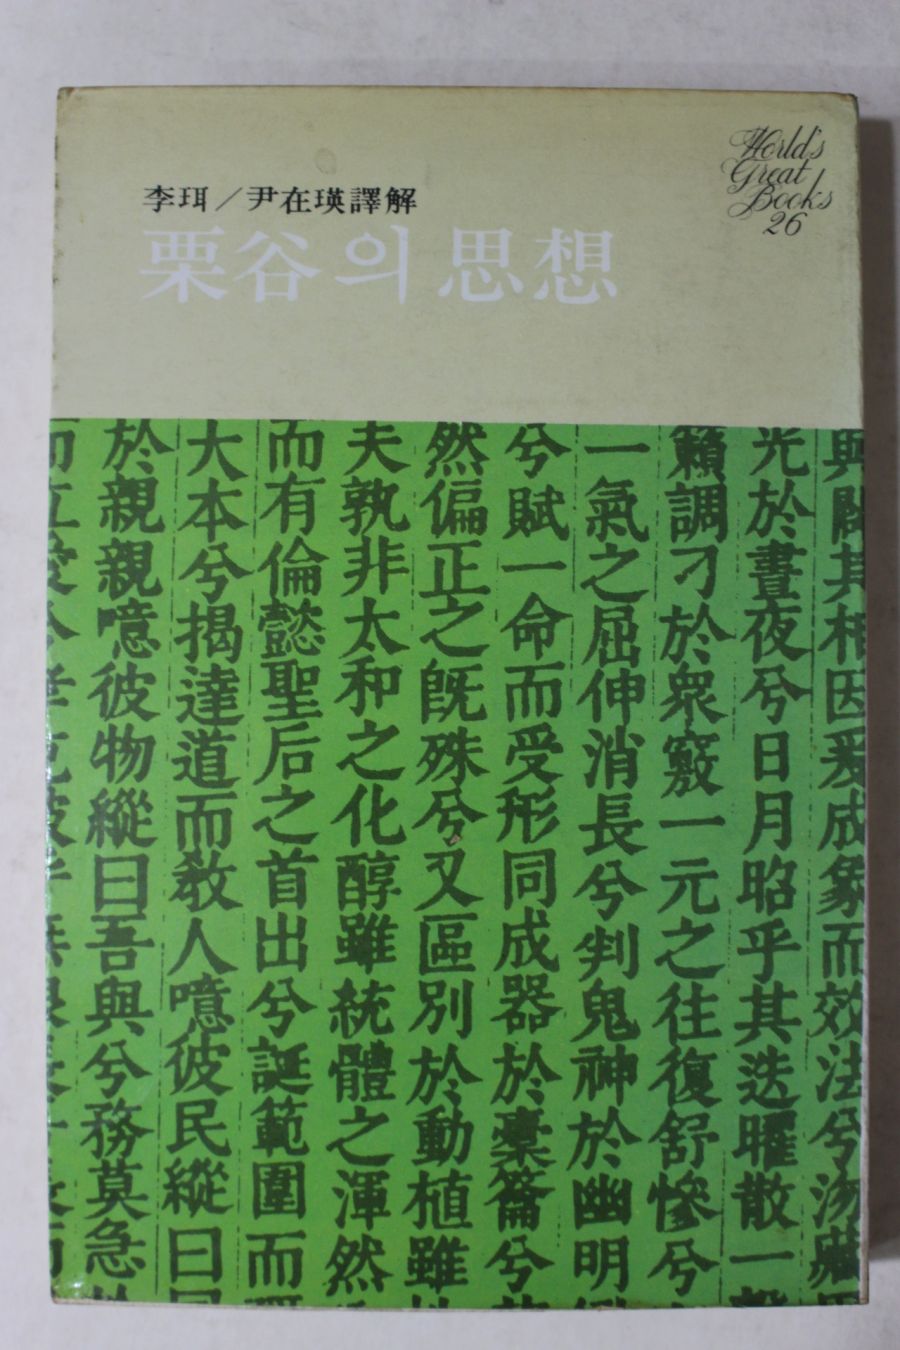 李珥／尹在瑛譯解
栗谷의 思想
World's
Great
Books
26
其相因爰成象而效法兮
光於晝夜兮日月昭乎其迭曜散一
籟調刁於衆竅一元之往復舒慘兮
一氣之屈伸消長兮判鬼神於幽明
兮賦一命而受形同成器於橐籥兮
然偏正之既殊兮又區別於動植雖
夫孰非太和之化醇雖統體之渾然
而有倫懿聖后之首出兮誕範圍而
大本兮揭達道而敎人噫彼民縱曰
於親親噫彼物縱曰吾與兮務莫急